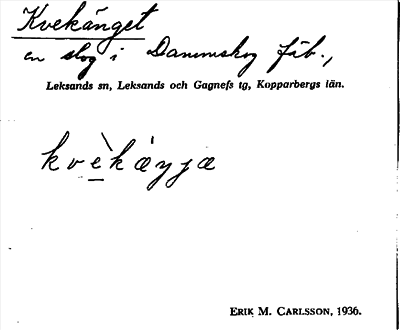 Kvekänget
en slog i Danmmsky fäb.,
Leksands sn, Leksands och Gagnefs tg, Kopparbergs län.
kvèkæŋjæ
ERIK M. CARLSSON, 1936.